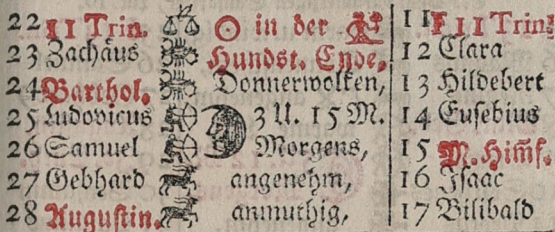 22 11 Trin. ☉ in der 11 F 11 Trin.
23 Zachäus Hundst. Ende, 12 Clara
24 Barthol. Donnerwolken, 13 Hildebert
25 Ludovicus 3 U. 15 M. 14 Eusebius
26 Samuel Morgens, 15 M. Him̄f.
27 Gebhard angenehm, 16 Isaac
28 Augustin. anmuthig, 17 Bilibald